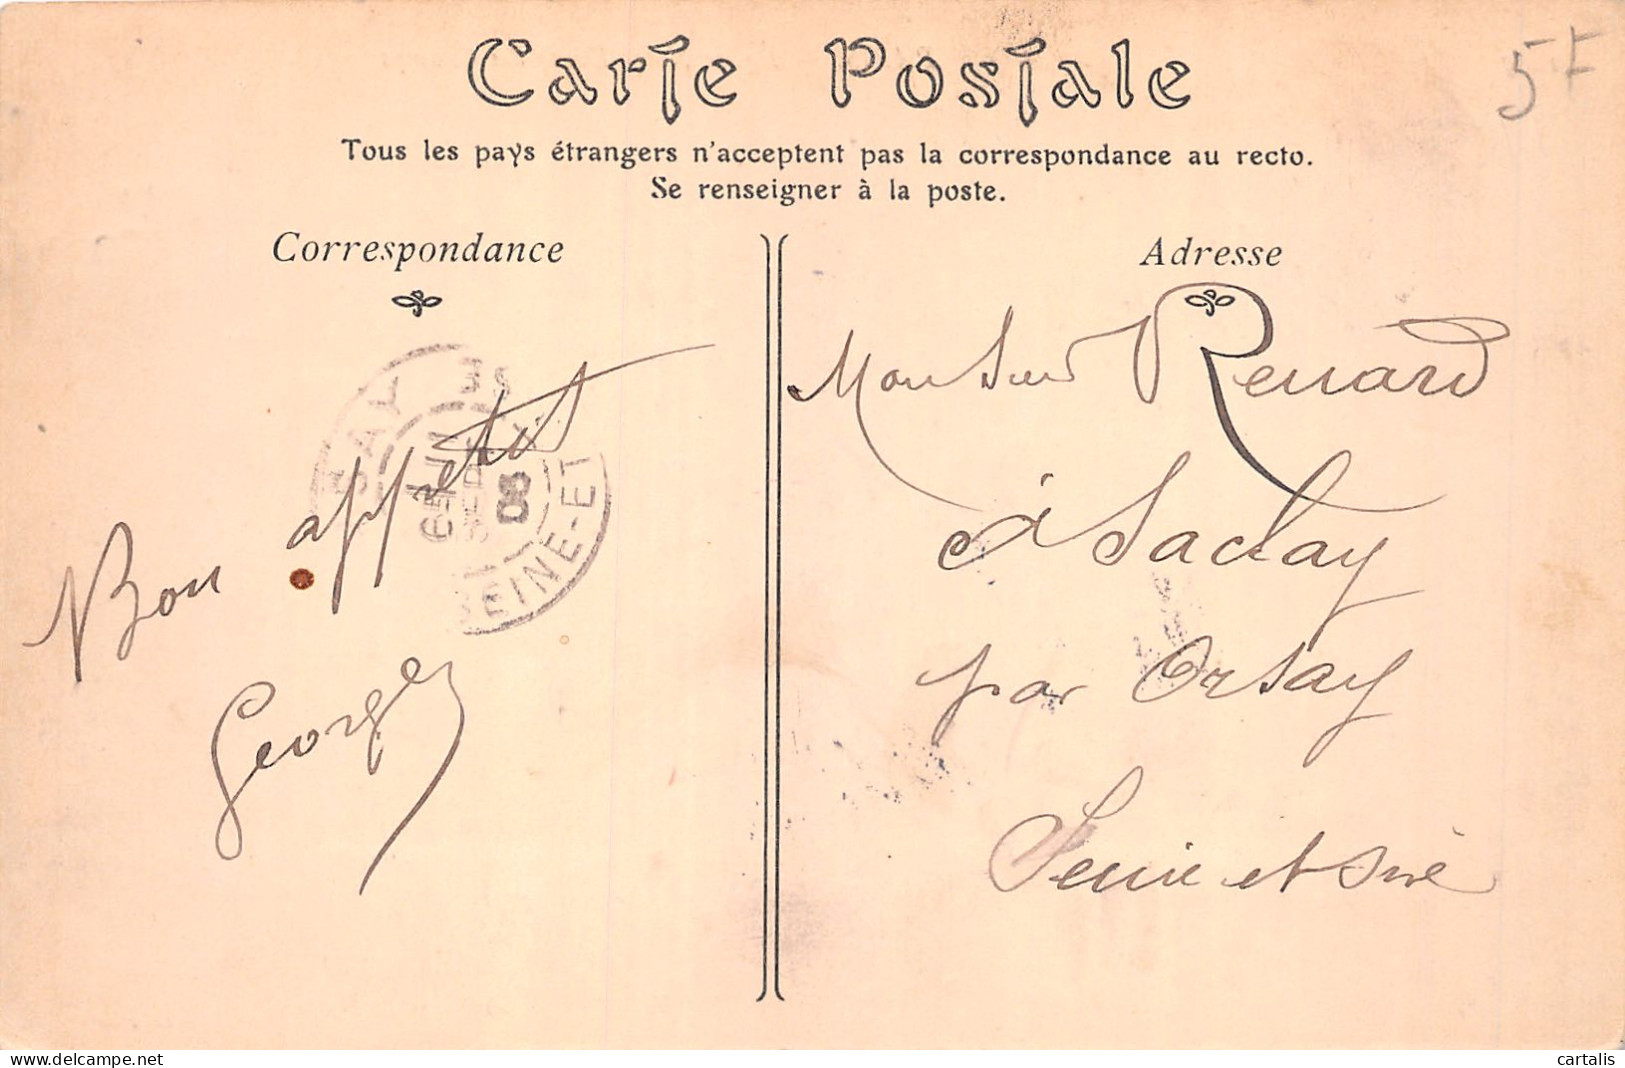 Carte Postale
5F
Tous les pays étrangers n'acceptent pas la correspondance au recto.
Se renseigner à la poste.
Correspondance
Bon appetit
Georges
SAY
SEINE-ET
08
Adresse
Monsieur Renard
à Saclay
par Orsay
Seine et Oise
www.delcampe.net
cartalis